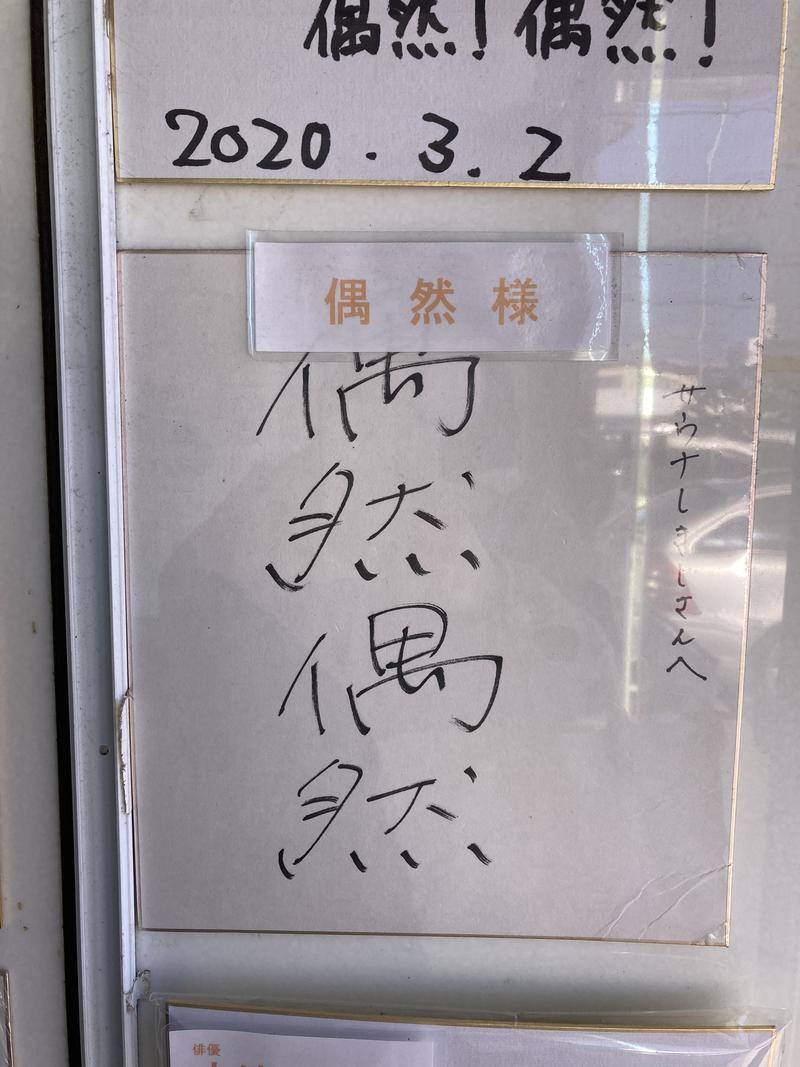 偶然!偶然!
2020.3.2
偶然様
サウナしきじさんへ
偶
然
偶
然
俳優